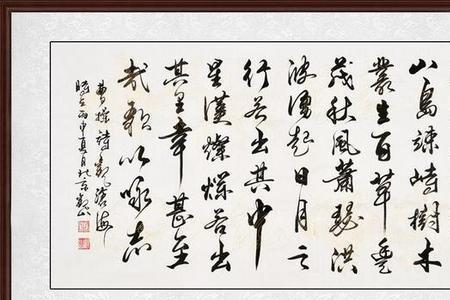 山島竦峙樹木
叢生百草豐
茂秋風蕭瑟洪
波湧起日月之
行若出其中
星漢燦爛若出
其里幸甚至
哉歌以咏志
曹操詩觀滄海
丙申夏月